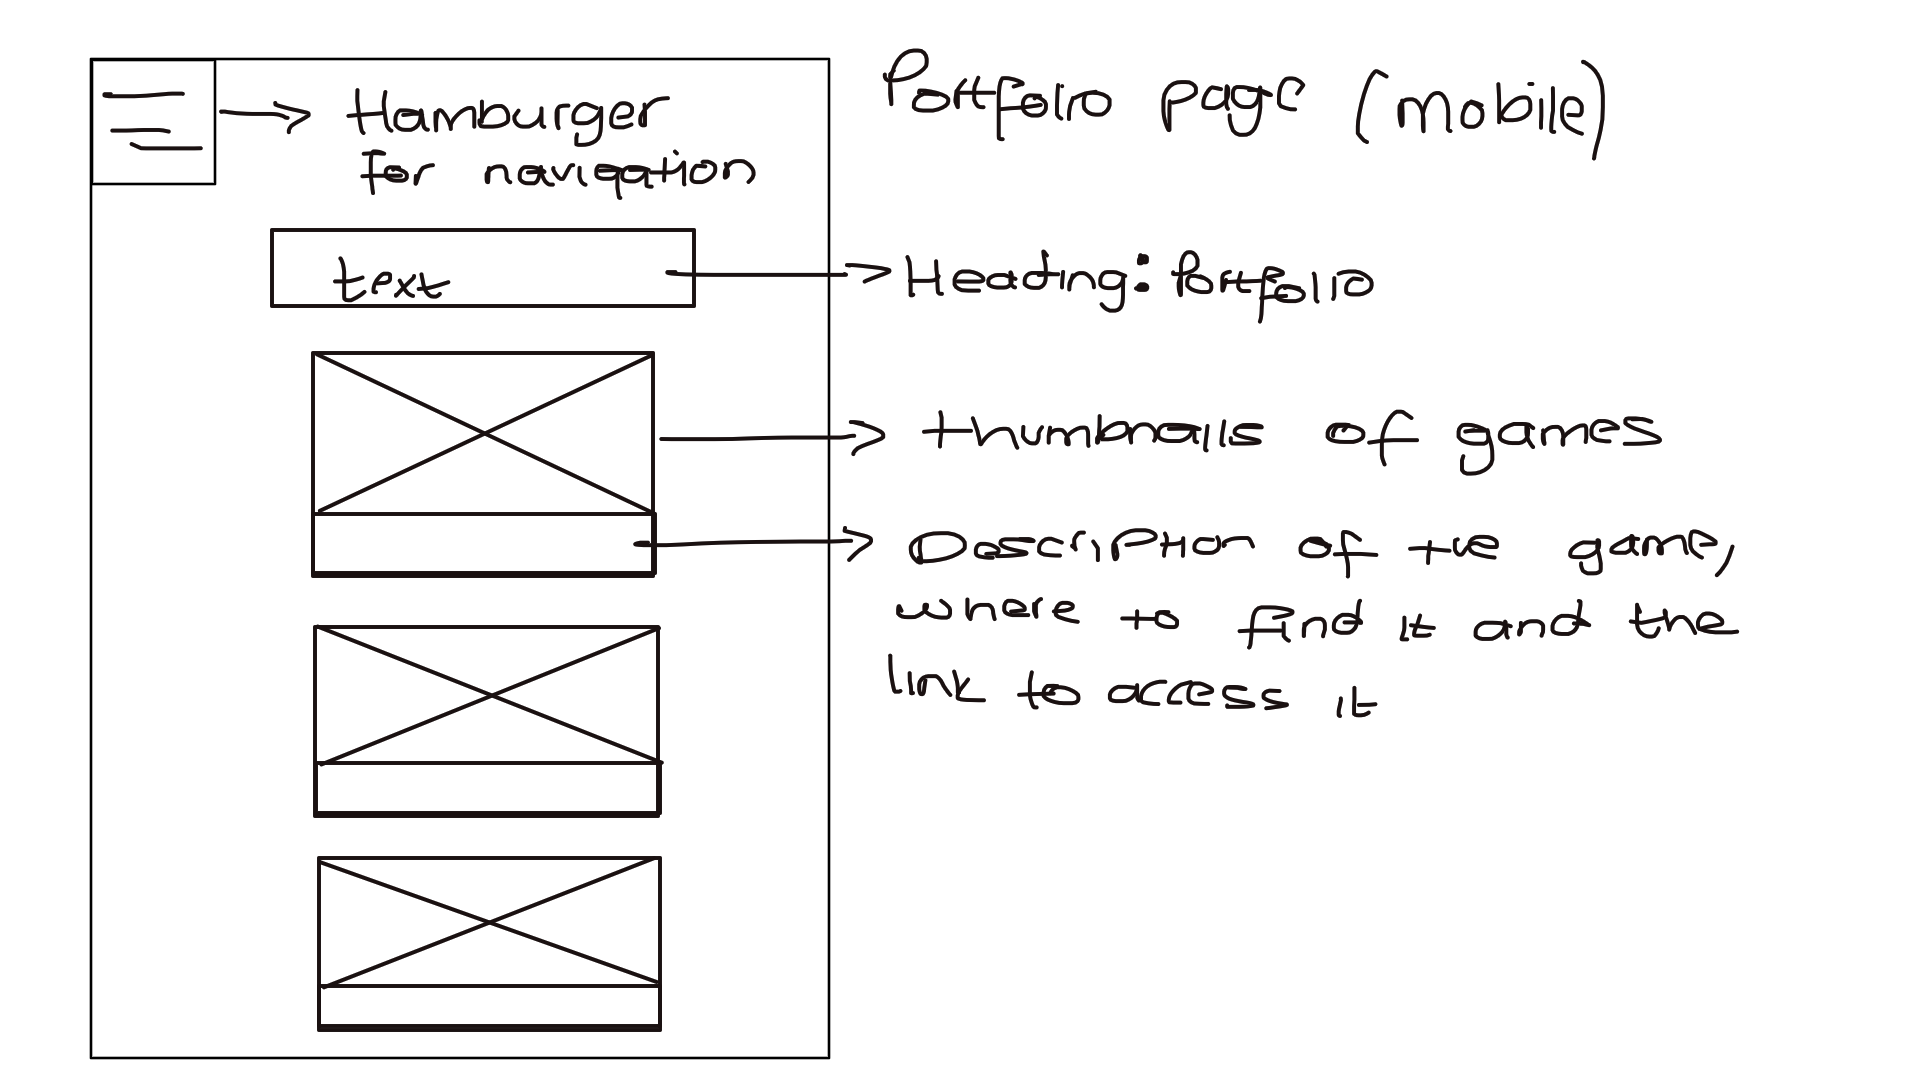 Portfolio page (mobile)
Hamburger
for navigation
text
Heading: Portfolio
thumbnails of games
Description of the game,
where to find it and the
link to access it